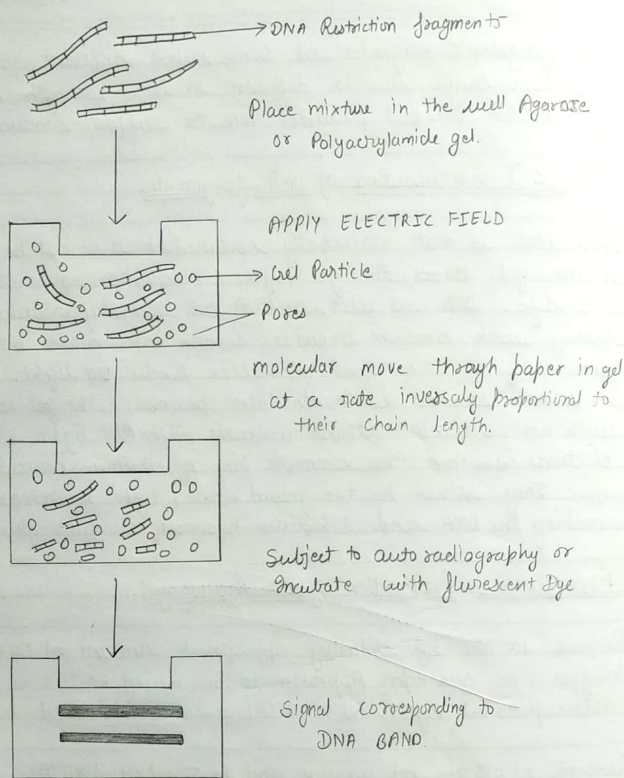 DNA Restriction fragments
Place mixture in the well Agarose
or Polyacrylamide gel.
APPLY ELECTRIC FIELD
Gel Particle
Pores
molecular move through paper in gel
at a rate inversaly proportional to
their chain length.
Subject to autoradiography or
Incubate with flurescent Dye
Signal corresponding to
DNA BAND.